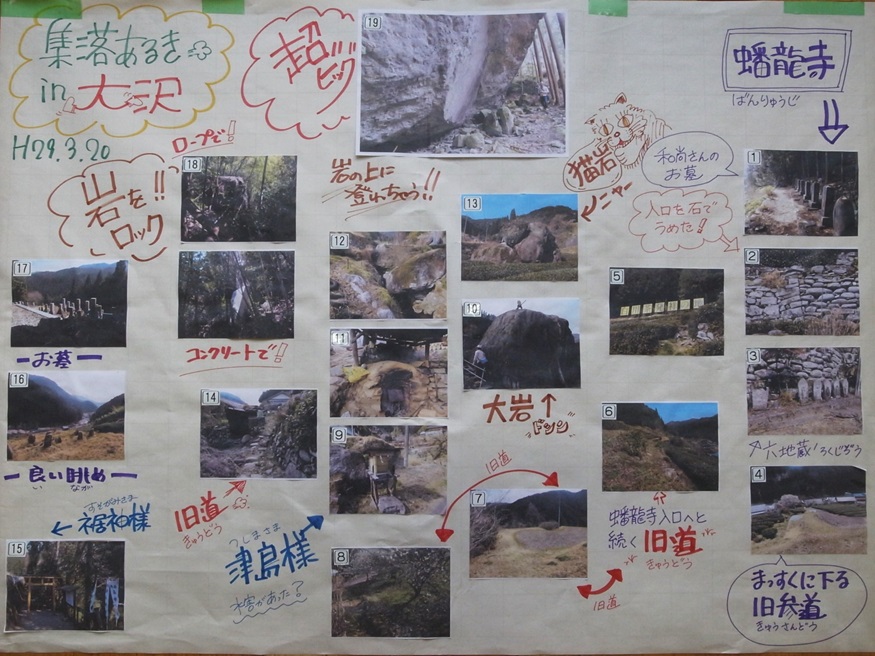 集落あるき
in 大沢
H29.3.20
超
ビッグ
19
蟠龍寺
ばんりゅうじ
岩を!!
ロック
ロープで!
18
コンクリートで!
17
お墓
16
良い眺め
い なが
すそがみさま
←裾神様
15
14
旧道
きゅうどう
岩の上に
登れちゃう!!
12
11
9
つしまさま
津島様
水害があった?
8
猫岩
ニャー
13
10
大岩↑
ドシン
旧道
7
旧道
和尚さんの
お墓
入口を石で
うめた!
5
6
蟠龍寺入口へと
続く旧道
きゅうどう
1
2
3
六地蔵 ろくじぞう
4
まっすぐに下る
旧参道
きゅうさんどう